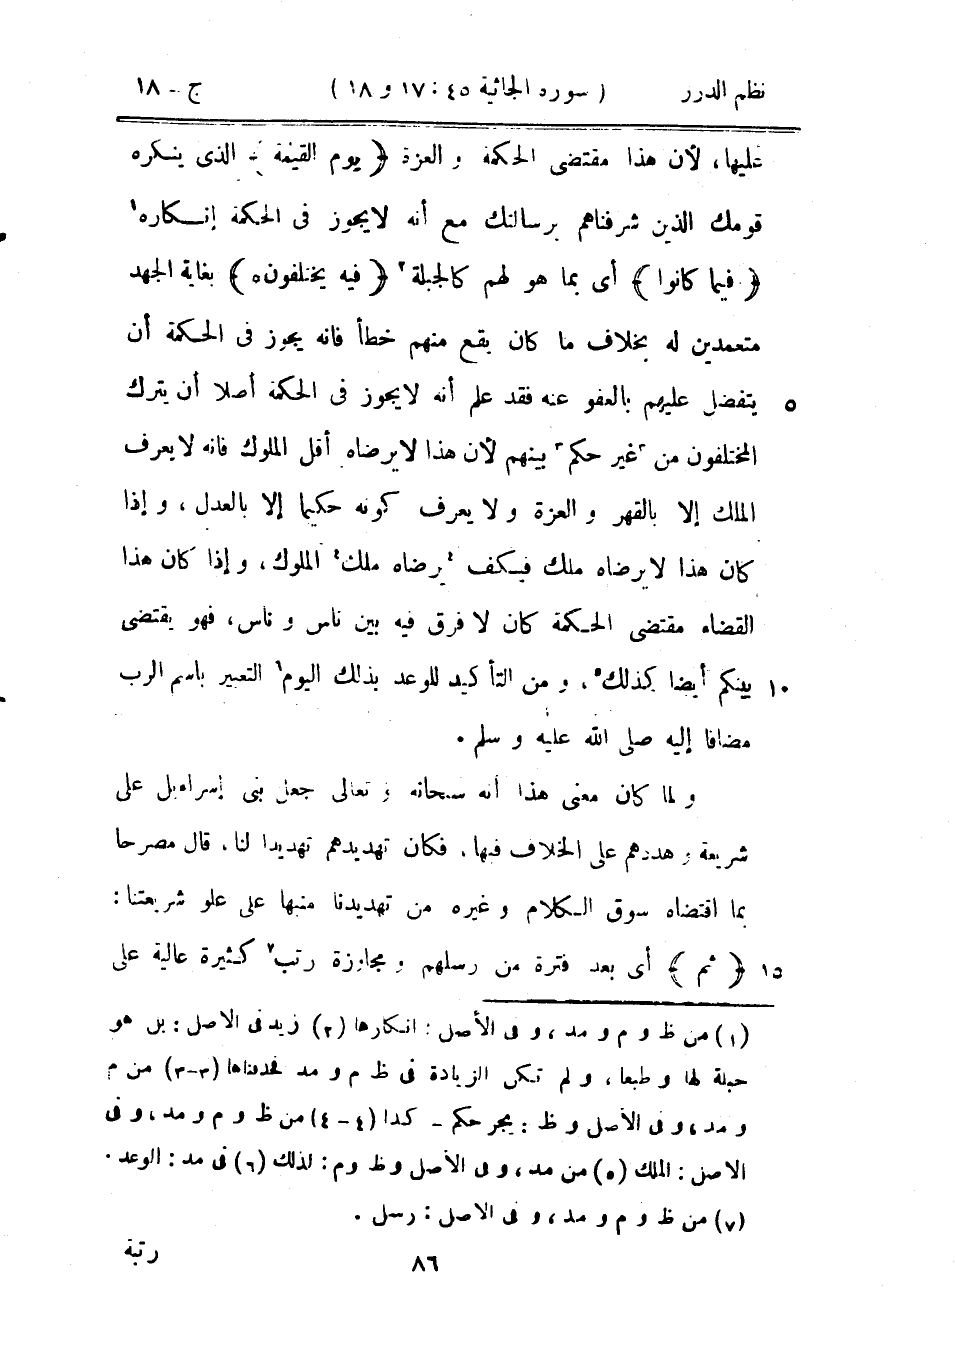 نظم الدرر ( سورة الجاثية ٤٥ : ١٧ و ١٨ ) ج - ١٨
عليها، لأن هذا مقتضى الحكمة و العزة ﴿ يوم القيٰمة ﴾ الذى ينكره
قومك الذين شرفناهم برسالتك مع أنه لايجوز فى الحكمة إنكاره١
﴿ فيما كانوا ﴾ أى بما هو لهم كالجبلة٢ ﴿ فيه يختلفون٥ ﴾ بغاية الجهد
متعمدين له بخلاف ما كان يقع منهم خطأ فانه يجوز فى الحكمة أن
٥ يتفضل عليهم بالعفو عنه فقد علم أنه لايجوز فى الحكمة أصلا أن يترك
المختلفون من ٣غير حكم٣ بينهم لأن هذا لايرضاه أقل الملوك فانه لايعرف
الملك إلا بالقهر و العزة و لايعرف كونه حكيما إلا بالعدل، و إذا
كان هذا لايرضاه ملك فكيف ٤يرضاه ملك٤ الملوك، و إذا كان هذا
القضاء مقتضى الحكمة كان لا فرق فيه بين ناس و ناس، فهو يقتضى
١٠ بينكم أيضا كذلك٥، و من التأكيد للوعد بذلك اليوم٦ التعبير باسم الرب
مضافا إليه صلى الله عليه و سلم .
و لما كان معنى هذا أنه سبحانه و تعالى جعل بنى إسراءيل على
شريعة و هددهم على الخلاف فيها، فكان تهديدهم تهديدا لنا، قال مصرحا
بما اقتضاه سوق الكلام و غيره من تهديدنا منبها على علو شريعتنا :
١٥ ﴿ ثم ﴾ أى بعد فترة من رسلهم و مجاوزة رتب٧ كثيرة عالية على
(١) من ظ و م و مد، و فى الأصل : انكارها (٢) زيد فى الاصل : بل هو
جبلة لها و طبعا، و لم تكن الزيادة فى ظ م و مد فحذفناها (٣-٣) من م
و مد، و فى الأصل و ظ : يجر حكم - كذا (٤-٤) من ظ و م و مد، و فى
الاصل : الملك (٥) من مد، و فى الأصل و ظ و م : لذلك (٦) فى مد : الوعد .
(٧) من ظ و م و مد، و فى الاصل : رسل .
٨٦ رتبة